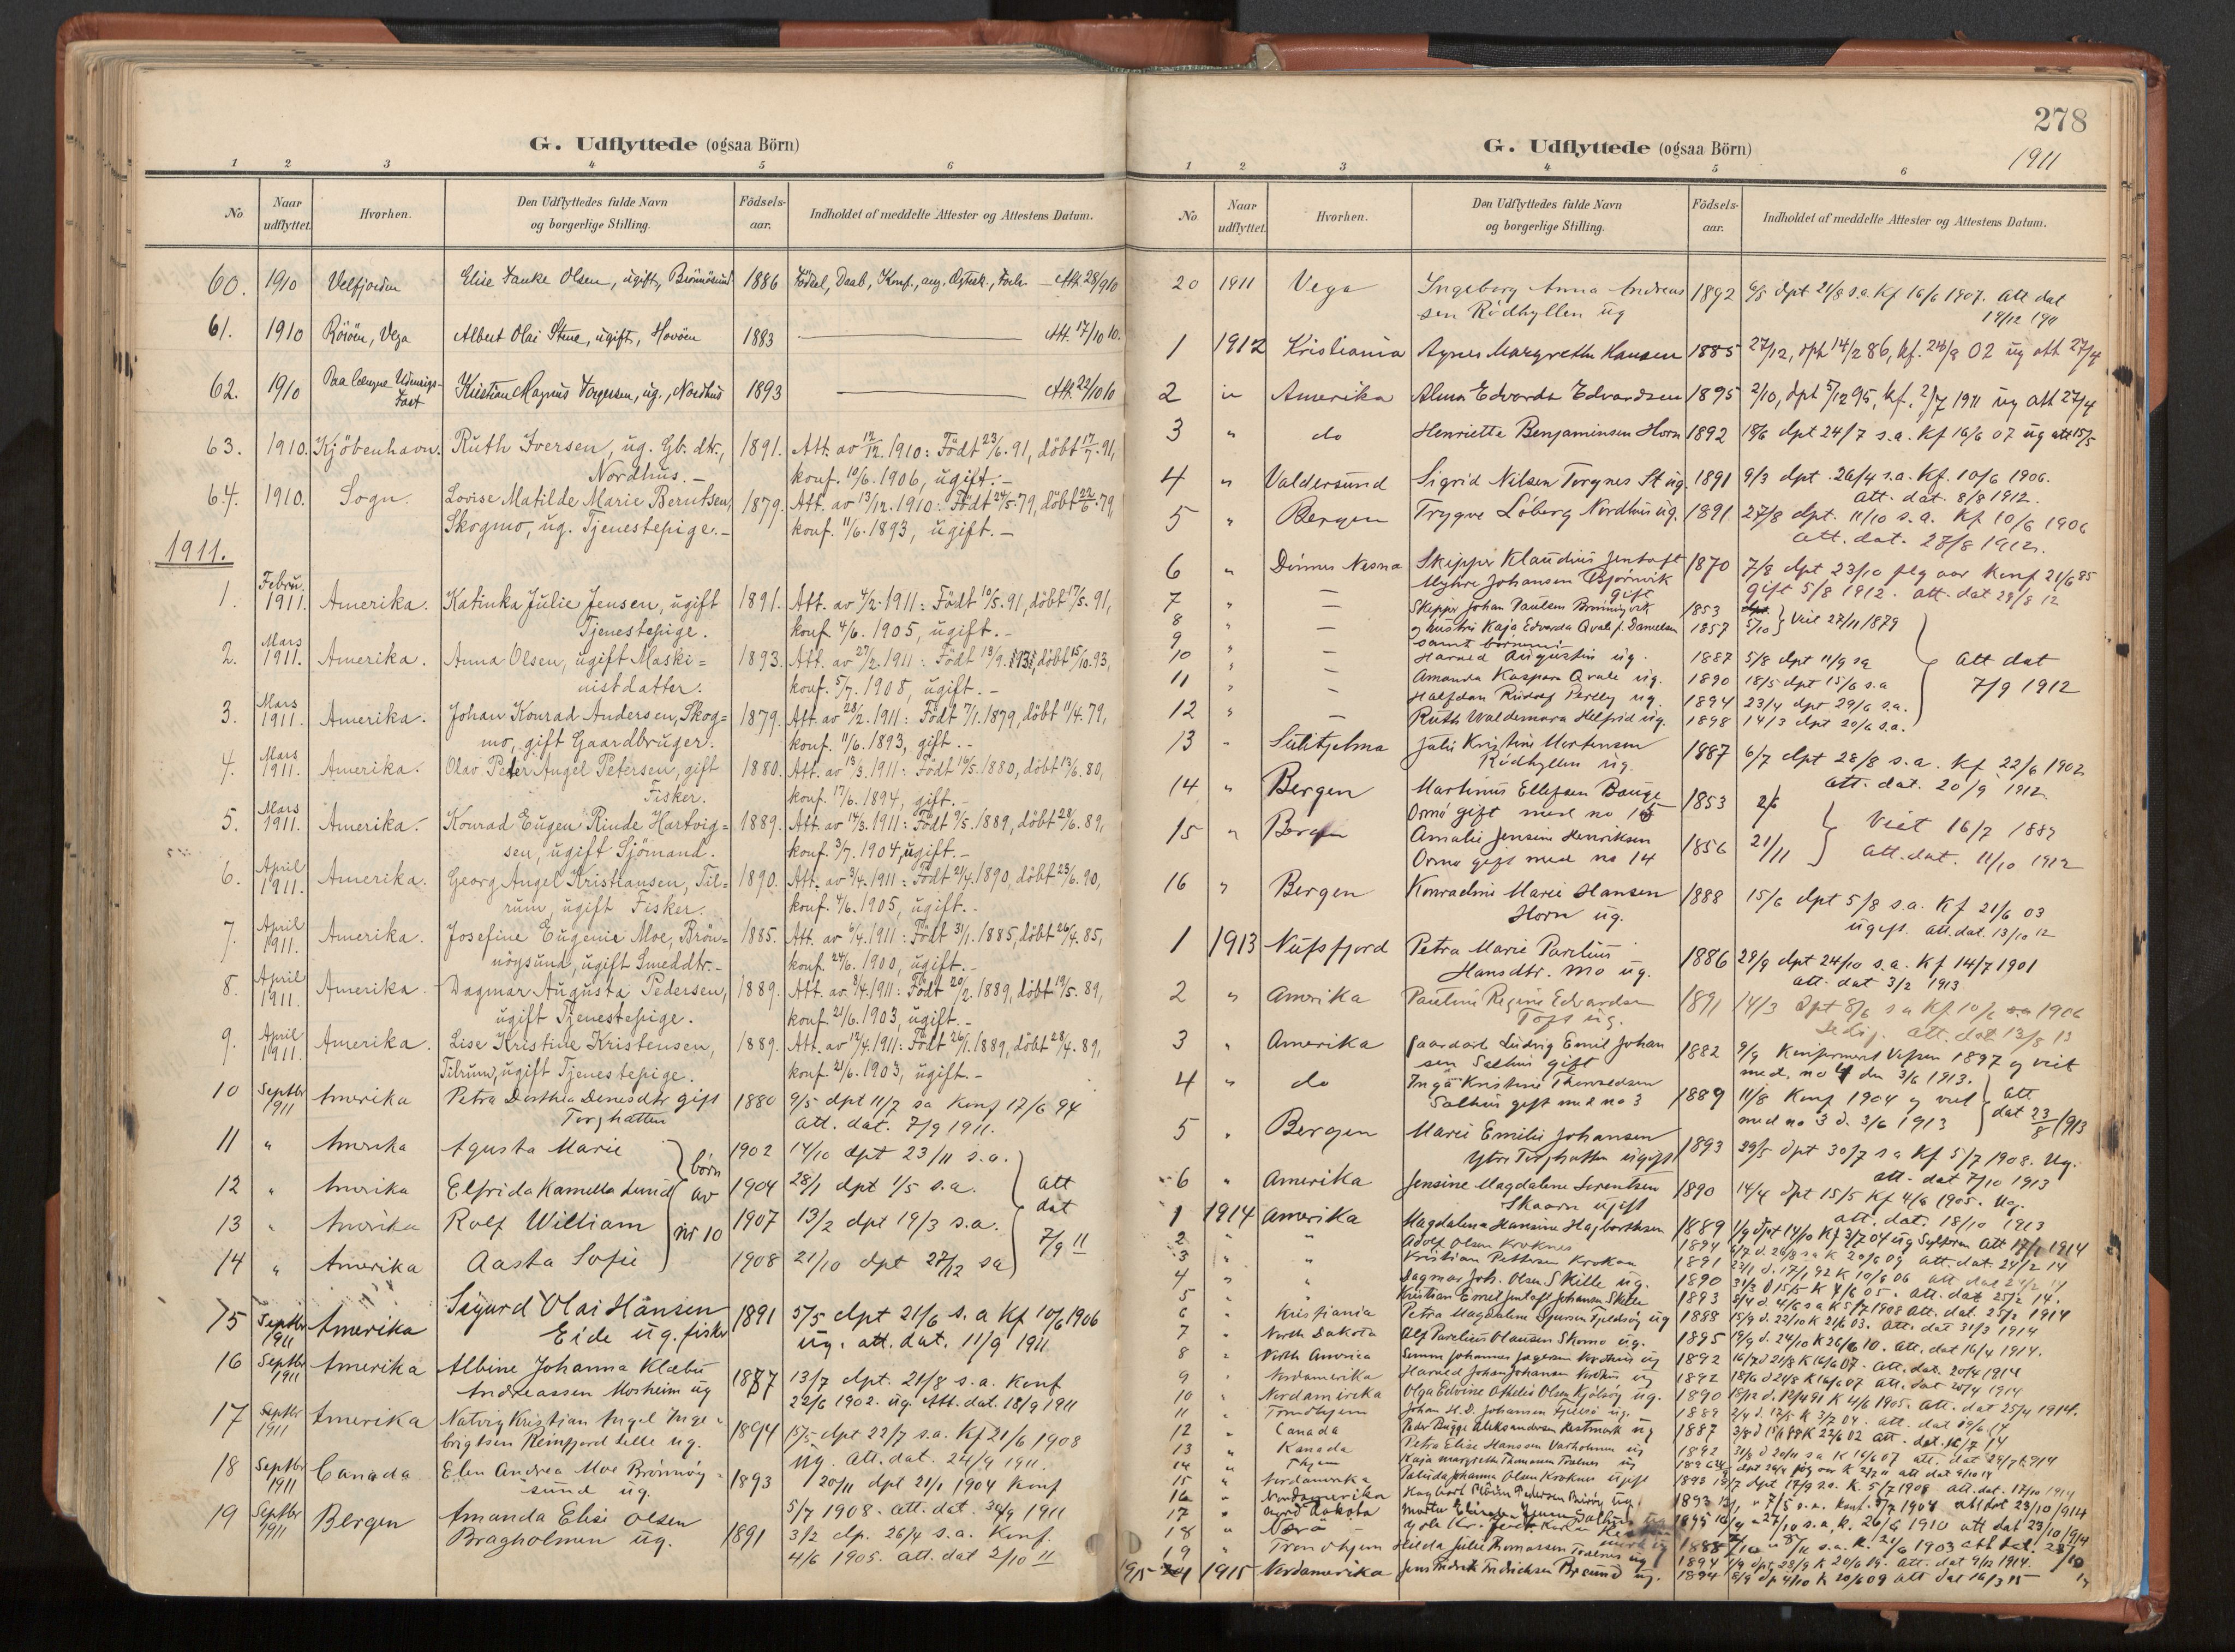 G. Udflyttede (ogsaa Börn)
1 2 3 4 5 6
No Naar udflyttet. Hvorhen. Den Udflyttedes fulde Navn og borgerlige Stilling. Födsels-aar. Indholdet af meddelte Attester og Attestens Datum.
60. 1910 Velfjorden Elise Olsen, ugift, Brönösund 1886 Födsel, Daab, Konf., Att. 28/9 10
61. 1910 Röröen, Vega Albert Olai Stene, ugift, Havöen 1883 — Att. 17/10 10.
62. 1910 Kristian Magnus Torgersen, ug., Nordhus 1893 — Att. 22/10 10
63. 1910. Kjöbenhavn. Ruth Iversen, ug. Gb. dtr., 1891. Att. av 12/12. 1910: Födt 23/6. 91, döbt 17/7. 91,
Nordhus. — konf. 10/6. 1906, ugift. —
64. 1910. Sogn. Lovise Matilde Marie Berntsen, 1879. Att. av 13/12. 1910: Födt 24/5. 79, döbt 22/6. 79,
Skogmo, ug. Tjenestepige. — konf. 11/6. 1893, ugift. —
1911.
1. Febru. 1911. Amerika. Katinka Julie Jensen, ugift 1891. Att. av 4/2. 1911: Födt 10/5. 91, döbt 17/5. 91,
Tjenestepige. konf. 4/6. 1905, ugift. —
2. Mars 1911. Amerika. Anna Olsen, ugift Maski= 1893. Att. av 27/2. 1911: Födt 13/9. 93, döbt 15/10. 93,
nistdatter. konf. 5/7. 1908, ugift. —
3. Mars 1911. Amerika. Johan Konrad Andersen, Skog= 1879. Att. av 28/2. 1911: Födt 7/1. 1879, döbt 11/4. 79,
mo, gift Gaardbruger. konf. 11/6. 1893, gift. —
4. Mars 1911. Amerika. Olav Peder Angel Petersen, gift 1880. Att. av 13/3. 1911: Födt 16/5. 1880, döbt 13/6. 80,
Fisker. konf. 17/6. 1894, gift. —
5. Mars 1911. Amerika. Konrad Eugen Rinde Hartvig= 1889. Att. av 14/3. 1911: Födt 9/5. 1889, döbt 28/6. 89,
sen, ugift Sjömand. konf. 3/7. 1904, ugift. —
6. April 1911. Amerika. Georg Angel Kristiansen, Til= 1890. Att. av 3/4. 1911: Födt 21/4. 1890, döbt 23/6. 90,
rum, ugift Fisker. konf. 4/6. 1905, ugift. —
7. April 1911. Amerika. Josefine Eugenie Moe, Brön= 1885. Att. av 6/4. 1911: Födt 31/1. 1885, döbt 26/4. 85,
nöysund, ugift Smeddtr. — konf. 24/6. 1900, ugift. —
8. April 1911. Amerika. Dagmar Augusta Pedersen, 1889. Att. av 8/4. 1911: Födt 20/2. 1889, döbt 19/5. 89,
ugift Tjenestepige. konf. 21/6. 1903, ugift. —
9. April 1911. Amerika. Lise Kristine Kristensen, 1889. Att. av 12/4. 1911: Födt 26/1. 1889, döbt 28/4. 89,
Tilrum, ugift Tjenestepige. konf. 21/6. 1903, ugift. —
10 Septbr 1911 Amerika Petra Dorthea Denesdtr gift 1880 9/5 dpt 11/7 sa Konf 17/6 94
Torghatten att. dat. 7/9 1911.
11 " Amerika Agusta Marie 1902 14/10 dpt 23/11 s.a.
12 " Amerika Elfrida Kamella Lund born av nr 10 1904 28/1 dpt 1/5 s.a. att dat 7/9 11
13 " Amerika Rolf William 1907 13/2 dpt 19/3 s.a.
14 " Amerika Aasta Sofie 1908 21/10 dpt 27/12 sa
15 Septbr 1911 Amerika Sigurd Olai Hansen 1891 5/5 dpt 21/6 s. a Kf 10/6 1906
Eide ug. fisker ug. att. dat. 11/9 1911.
16 Septbr 1911 Amerika Albine Johanna Klæbu 1887 13/7 dpt. 21/8 s.a. Konf
Andreassen Mosheim ug 22/6 1902. ug. Att. dat. 18/9 1911
17 Septbr 1911 Amerika Natvig Kristian Angel Inge= 1894 15/5 dpt 22/7 s.a. Kf 21/6 1908
brigtsen Reinfjord ug. ug. Att. dat. 24/9 1911.
18 Septbr 1911 Canada Elen Andrea Moe Brönnöy= 1893 20/11 dpt 21/1 1904 Konf
sund ug. 5/7 1908. att. dat. 30/9 1911
19 Septbr 1911 Bergen Amanda Elise Olsen 1891 3/2 dp. 26/4 s.a. Konf.
Bragholmen ug. 4/6 1905. att. dat 2/10 11
278
G. Udflyttede (ogsaa Börn)
1911
1 2 3 4 5 6
No Naar udflyttet. Hvorhen. Den Udflyttedes fulde Navn og borgerlige Stilling. Födsels-aar. Indholdet af meddelte Attester og Attestens Datum.
20 1911 Vega Ingeborg Anna Andreas 1892 6/5 dpt 21/8 s.a. Kf 16/6 1907. att dat
sen Rödhyllen ug 19/12 1911
1 1912 Kristiania Agnes Margrethe Hansen 1885 27/12, dpt 14/2 86, kf. 24/8 02 ug att 27/4
2 " Amerika Alma Edvarda Edvardsen 1895 2/10, dpt 5/12 95, kf. 2/7 1911 ug att 27/4
3 " do Henriette Benjaminsen Horn 1892 18/6 dpt 24/7 s.a. Kf 16/6 07 ug att 15/5
4 " Valdersund Sigrid Nilsen Torgnes St ug. 1891 9/3 dpt. 26/4 s.a. Kf. 10/6 1906.
att. dat. 8/8 1912.
5 " Bergen Trygve Löberg Nordhus ug. 1891 27/8 dpt. 11/10 s.a. Kf 10/6 1906
att. dat. 28/8 1912.
6 " Dönnes Nesna Skipper Klaudius Jentoft 1870 7/8 dpt 23/10 flg aar Konf 21/6 85
Myhre Johansen Bjørnvik gift gift 5/8 1912. att. dat 29/8 12
7 " — Skipper Johan Paulsen 1853
8 " — og hustru Kaja Edvarda Qvale f. Danielsen 1857 5/10 Viet 27/11 1879
samt børnene
9 " — Harald Augustin ug. 1887 5/8 dpt 11/9 sa
10 " — Amanda Kaspara Qvale ug. 1890 18/5 dpt 15/6 s.a att dat
11 " — Halfdan Rudolf ug. 1894 23/4 dpt 29/6 s.a. 7/9 1912
12 " — Ruth Waldemara Helfrid ug. 1898 14/3 dpt 20/6 s.a.
13 " Sulitjelma Julie Kristine Mortensen 1887 6/7 dpt 28/8 s.a. Kf 22/6 1902
Rödhyllen ug. att. dat. 20/9 1912.
14 " Bergen Martinus Ellefsen Bauge 1853 2/6
Ormö gift med no 15 Viet 16/7 1889
15 " Bergen Amalie Jensine Henriksen 1856 21/11 att. dat. 11/10 1912
Ormö gift med no 14
16 " Bergen Konradine Marie Hansen 1888 15/6 dpt 5/8 s.a. Kf 21/6 03
Horn ug. ugift. att. dat. 13/10 12
1 1913 Nufsfjord Petra Marie Parelius 1886 29/9 dpt 24/10 s.a. Kf 14/7 1901
Hansdtr. Mo ug. att. dat 3/2 1913
2 " Amerika Pauline Regine Edvardsen 1891 14/3 dpt 8/6 sa Kf 10/6 1906
Tofs ug. att. dat 13/8 13
3 " Amerika Gaardarb Ludvig Emil Johan 1882 9/9 Konfirmert Vefsen 1897 og viet
sen Salhus gift med no 4 den 3/6 1913.
4 " do Inga Kristine 1889 11/8 Konf 1904 og viet att dat 23/8 1913
Salhus gift med no 3 med no 3 d. 3/6 1913
5 " Bergen Marie Emilie Johansen 1893 29/5 dpt 30/7 sa Kf 5/7 1908. Ug.
Ytre Torghatten ugift att. dat 7/10 1913
6 " Amerika Jensine Magdalene Sörentsen 1890 14/4 dpt 15/5 Kf 4/6 1905. Ug.
Skaarn ugift att. dat. 18/10 1913
1 1914 Amerika Magdalena Hansine Hagborthsen 1889 1/9 dpt 14/10 Kf 3/7 04 ug att 17/2 1914
2 " " Adolf Olsen Kroknes 1894 6/7 d. 26/8 sa K 20/6 09 att. dat. 24/2 14
3 " " Kristian Pettersen Krokan 1891 d. 17/1 92 K 10/6 06 att dat 24/2 14
4 " " Dagmar Joh. Olsen Skille ug. 1890 31/3 D 15/5 K 4/6 05. att. dat 25/2 14.
5 " " Kristian Emil Jentoft Johansen Skille 1893 8/4 d. 4/6 sa K 5/7 1908 att. dat. 25/2 1914
6 " Kristiania Petra Magdalene ug 1888 15/9 d. 22/10 K 21/6 03. att. dat 31/3 1914
7 " North Dakota Alf Parelius Olausen Skomo ug. 1895 19/9 d. 24/10 K 26/6 10. att. dat 16/4 1914.
8 " North America Johannes Nordhus ug 1892 16/7 d 21/8 K 16/6 07. att. dat. 20/4 1914
9 " Nordamerika Harald Johan Johansen Nordhus ug 1892 18/6 d 21/8 K 16/6 07 att. dat 25/4 1914
10 " Nordamerika Olga Edvine Othelie Olsen ug. 1890 18/12 d. 12/4 91 K 4/6 1905. att. dat 25/4 1914.
11 " Trondhjem Johan H.D. Johansen ug. 1889 2/4 d. 12/5 K 3/7 04. att. dat
12 " Canada Peder Bugge Aleksandersen ug 1887 3/8 d K 22/6 02 att. dat. 16/7 14
13 " Kanada Petra Elise Hanssen Varholmen ug 1892 d 20/11 sa K 16/6 07 att. dat 24/7 1914
14 " Thjem Kaja Margrethe Thomassen ug 1896 dpt 26/4 att dat 9/10 14
15 " Nordamerika Johanna Olsen Kroknes ugift dpt 17/9 s.a. K. 5/7 1908 att. dat. 17/10 1914
16 " Nordamerika Hagbart Pedersen ug. 1893 7/5 s.a. Konf. 5/7 1908 att dat 23/10 1914
17 " Nord Dakota Martin ug 1895 27/10 s.a. K. 26/6 1910 att dat 23/10 1914
18 " Værö 1888 s.a. K. 21/6 1903 att dat. 28/10
19 " Trondhjem Hilda Julie Thomassen ug 1894 dpt. 28/9 K 20/6 09. att. dat 9/12 1914.
1915 1 1915 Nordamerika Jens Fredrik Fredriksen ug. 1894 8/9 dp 4/10 K 20/6 09 att dat 16/3 15